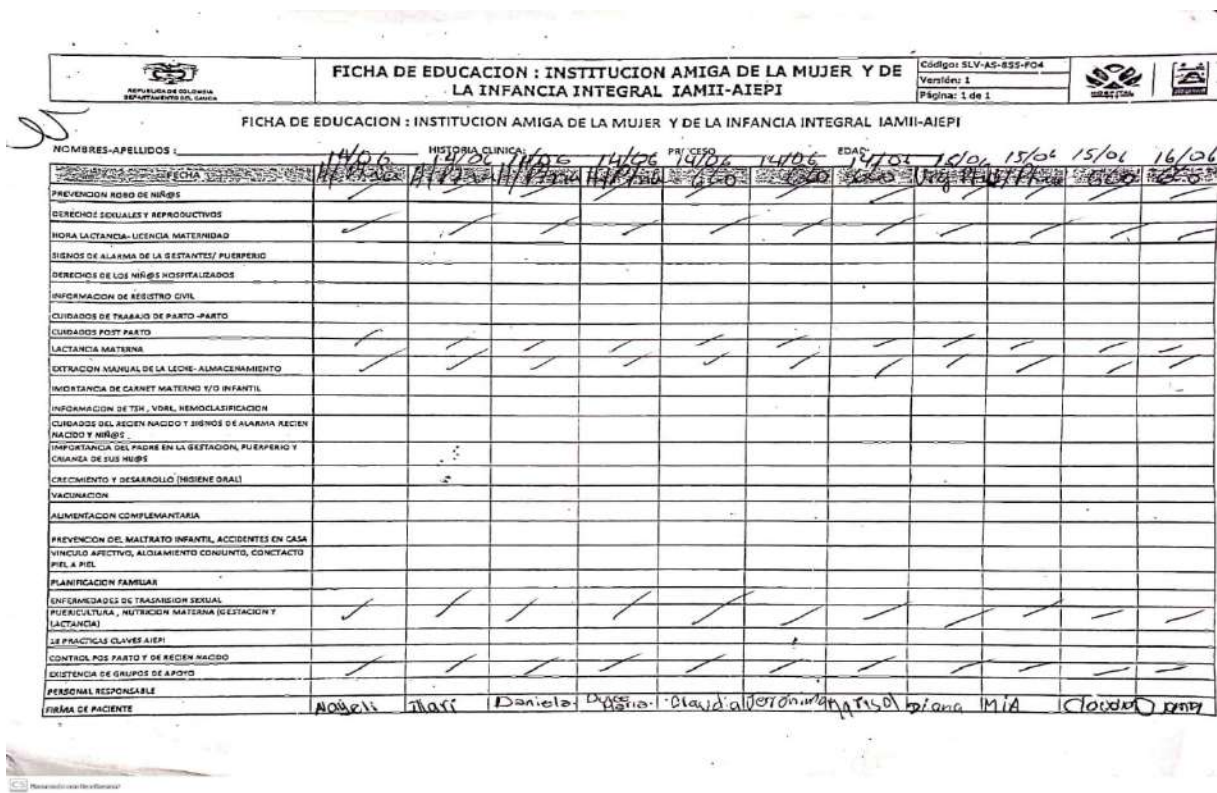 REPUBLICA DE COLOMBIA
DEPARTAMENTO DEL CAUCA
FICHA DE EDUCACION : INSTITUCION AMIGA DE LA MUJER Y DE
LA INFANCIA INTEGRAL IAMII-AIEPI
Código: SLV-AS-855-FO4
Versión: 1
Página: 1 de 1
HOSPITAL
FICHA DE EDUCACION : INSTITUCION AMIGA DE LA MUJER Y DE LA INFANCIA INTEGRAL IAMII-AIEPI
NOMBRES-APELLIDOS : HISTORIA CLINICA: PROCESO EDAD:
14/06 14/06 14/06 14/06 14/06 14/06 14/06 15/06 15/06 15/06 16/06
FECHA
PREVENCION ROBO DE NIÑ@S
DERECHOS SEXUALES Y REPRODUCTIVOS
HORA LACTANCIA- LICENCIA MATERNIDAD
SIGNOS DE ALARMA DE LA GESTANTES/ PUERPERIO
DERECHOS DE LOS NIÑ@S HOSPITALIZADOS
INFORMACION DE REGISTRO CIVIL
CUIDADOS DE TRABAJO DE PARTO -PARTO
CUIDADOS POST PARTO
LACTANCIA MATERNA
EXTRACION MANUAL DE LA LECHE- ALMACENAMIENTO
IMORTANCIA DE CARNET MATERNO Y/O INFANTIL
INFORMACION DE TSH , VDRL, HEMOCLASIFICACION
CUIDADOS DEL RECIEN NACIDO Y SIGNOS DE ALARMA RECIEN
NACIDO Y NIÑ@S
IMPORTANCIA DEL PADRE EN LA GESTACION, PUERPERIO Y
CRIANZA DE SUS HIJ@S
CRECIMIENTO Y DESARROLLO (HIGIENE ORAL)
VACUNACION
ALIMENTACION COMPLEMANTARIA
PREVENCION DEL MALTRATO INFANTIL, ACCIDENTES EN CASA
VINCULO AFECTIVO, ALOJAMIENTO CONJUNTO, CONCTACTO
PIEL A PIEL
PLANIFICACION FAMILIAR
ENFERMEDADES DE TRASMISION SEXUAL
PUERICULTURA , NUTRICION MATERNA (GESTACION Y
LACTANCIA)
18 PRACTICAS CLAVES AIEPI
CONTROL POS PARTO Y DE RECIEN NACIDO
EXISTENCIA DE GRUPOS DE APOYO
PERSONAL RESPONSABLE
FIRMA DE PACIENTE Nayeli Mari Daniela Maria Claudia Jeronima Marisol Diana MIA
CS